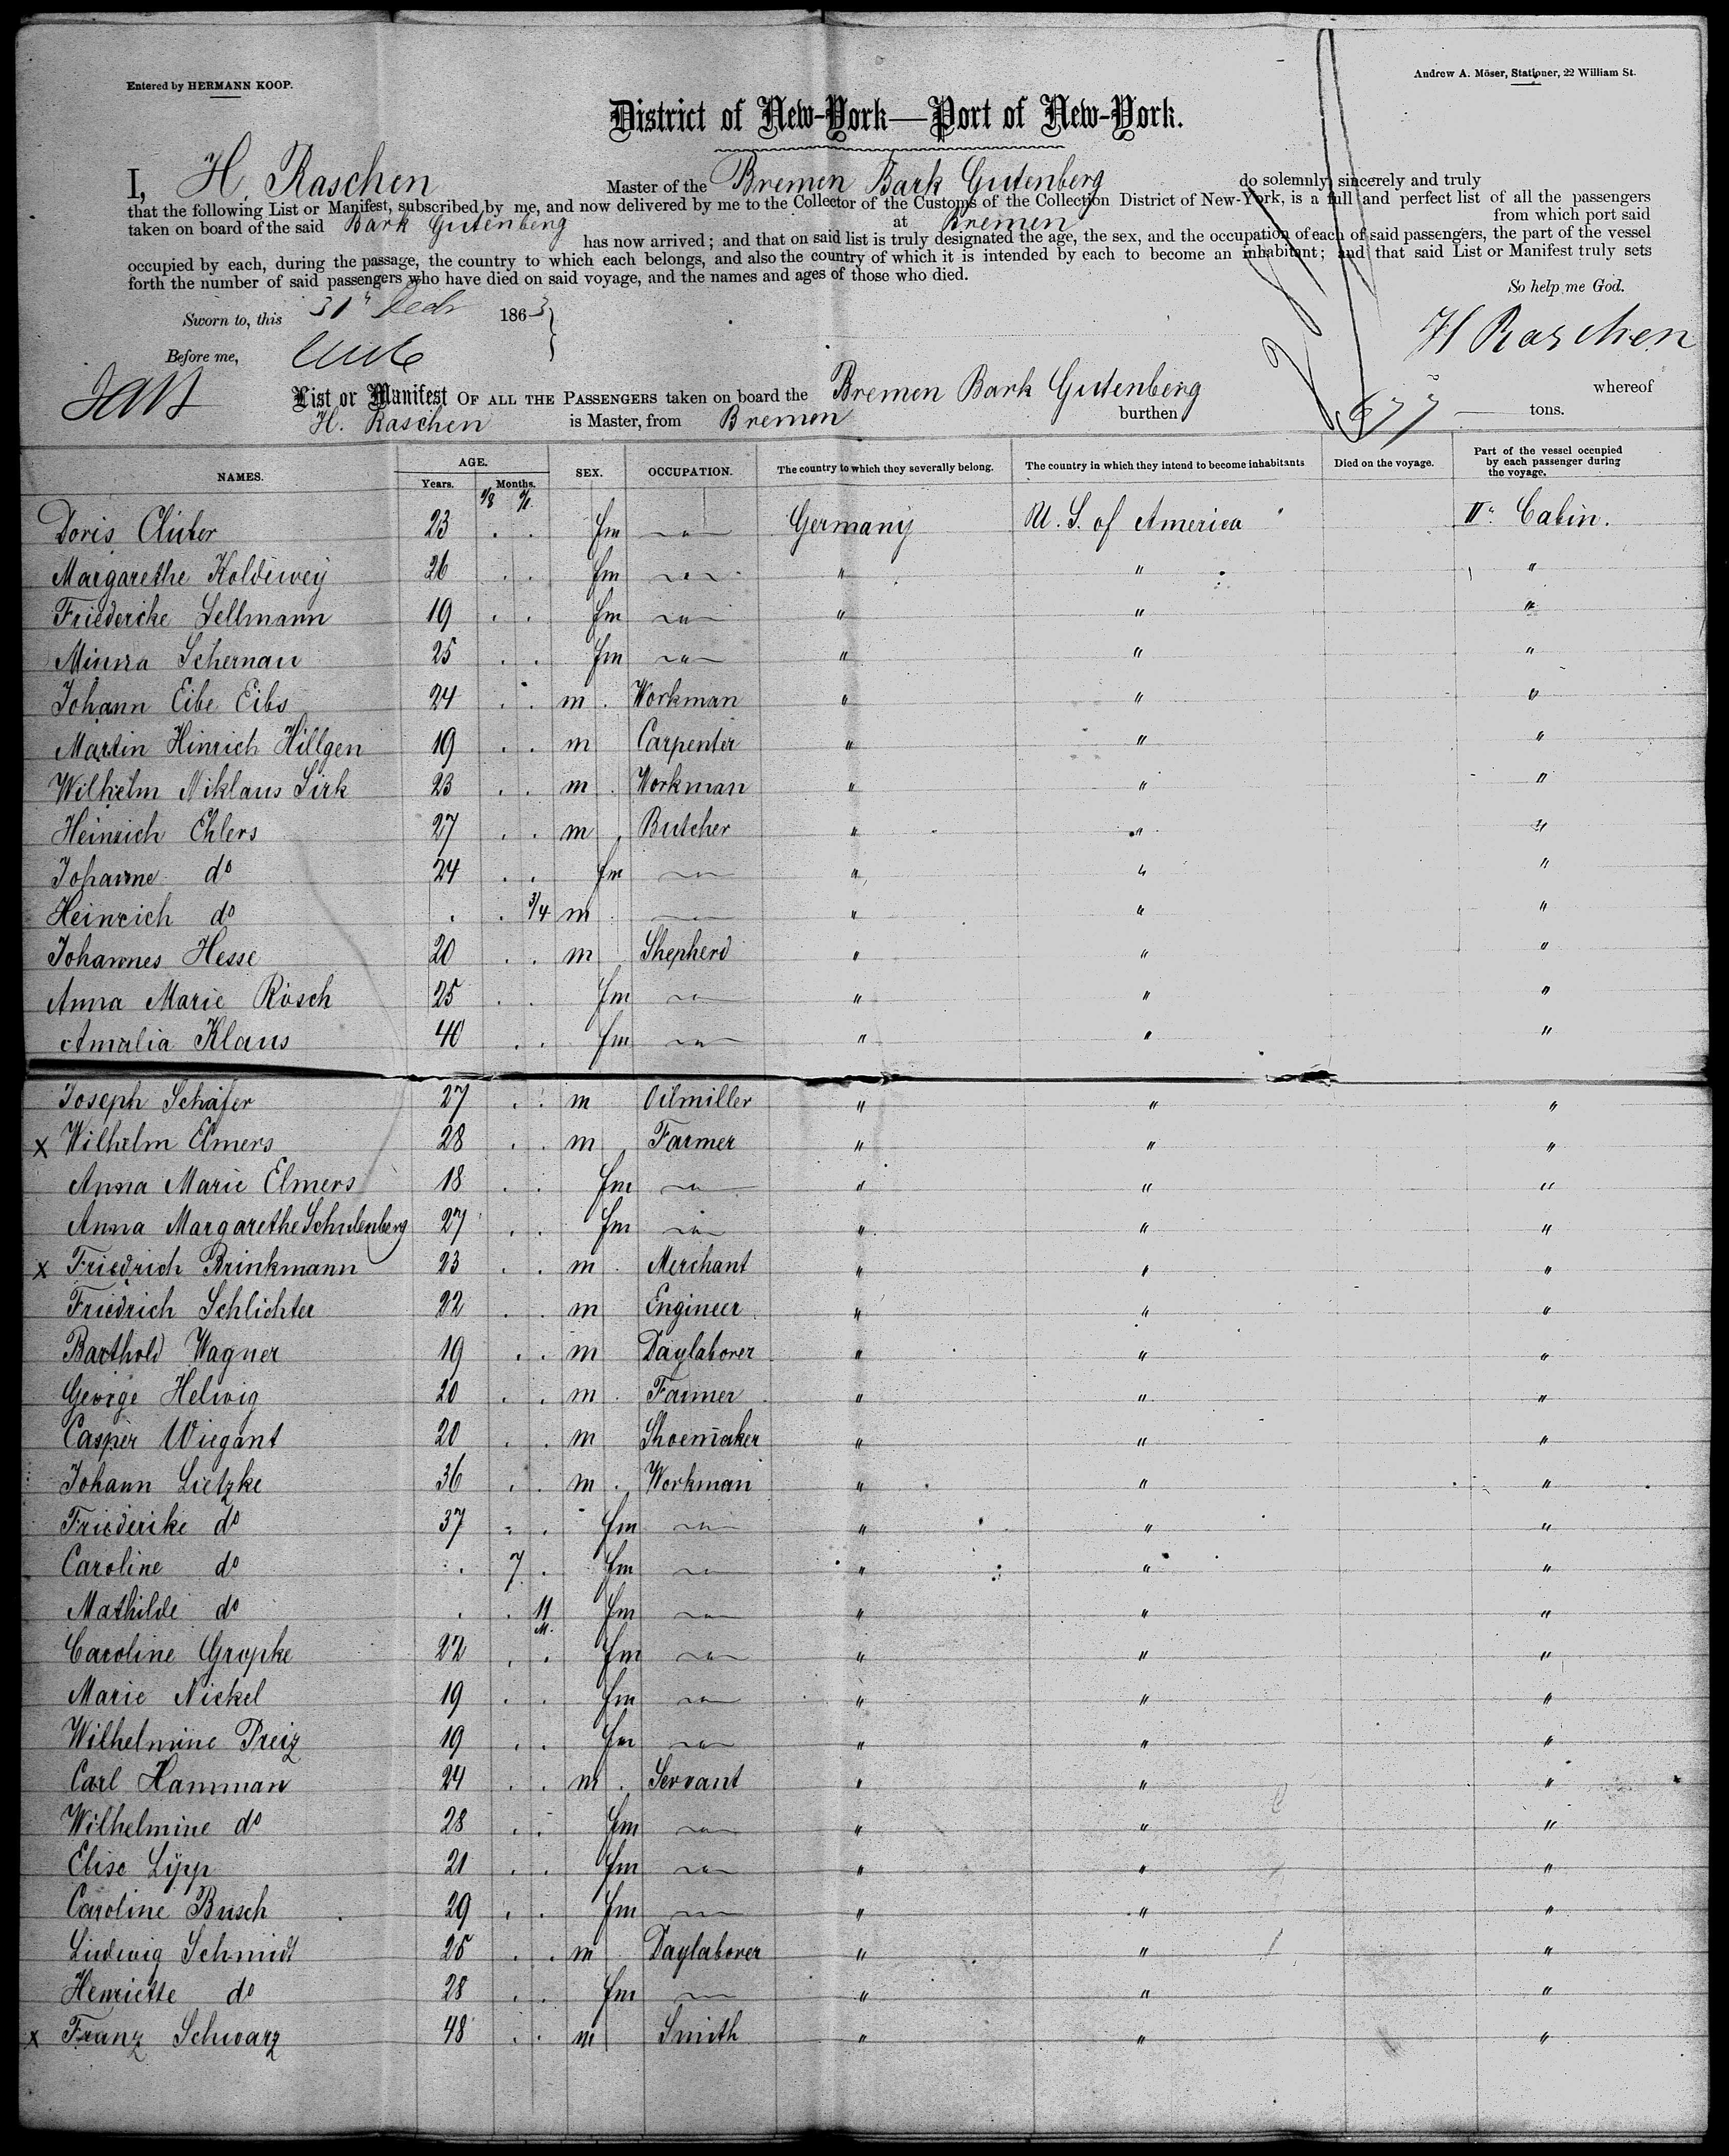 Entered by HERMANN KOOP.
Andrew A. Möser, Stationer, 22 William St.
District of New-York—Port of New-York.
I, H. Raschen Master of the Bremen Bark Gutenberg do solemnly, sincerely and truly
that the following List or Manifest, subscribed by me, and now delivered by me to the Collector of the Customs of the Collection District of New-York, is a full and perfect list of all the passengers
taken on board of the said Bark Gutenberg at Bremen from which port said
has now arrived; and that on said list is truly designated the age, the sex, and the occupation of each of said passengers, the part of the vessel
occupied by each, during the passage, the country to which each belongs, and also the country of which it is intended by each to become an inhabitant; and that said List or Manifest truly sets
forth the number of said passengers who have died on said voyage, and the names and ages of those who died.
So help me God.
Sworn to, this 31 Decbr 1863
H Raschen
Before me,
List or Manifest OF ALL THE PASSENGERS taken on board the Bremen Bark Gutenberg whereof
H. Raschen is Master, from Bremen burthen 677 tons.
NAMES. AGE. Years. Months. SEX. OCCUPATION. The country to which they severally belong. The country in which they intend to become inhabitants Died on the voyage. Part of the vessel occupied by each passenger during the voyage.
Doris Clüver 23 fm Germany U. S. of America II. Cabin.
Margarethe Koldewey 26 fm " " "
Friedericke Sellmann 19 fm " " "
Minna Schernau 25 fm " " "
Johann Eibe Eibs 24 m Workman " " "
Martin Hinrich Hillgen 19 m Carpenter " " "
Wilhelm Niklaus Lirk 23 m Workman " " "
Heinrich Ehlers 27 m Butcher " " "
Johanne do 24 fm " " "
Heinrich do 3/4 m " " "
Johannes Hesse 20 m Shepherd " " "
Anna Marie Rösch 25 fm " " "
Amalia Klaus 40 fm " " "
Joseph Schäfer 27 m Oilmiller " " "
x Wilhelm Elmers 28 m Farmer " " "
Anna Marie Elmers 18 fm " " "
Anna Margarethe Schulenberg 27 fm " " "
x Friedrich Brinkmann 23 m Merchant " " "
Friedrich Schlichter 22 m Engineer " " "
Barthold Wagner 19 m Daylaborer " " "
George Helwig 20 m Farmer " " "
Casper Wiegant 20 m Shoemaker " " "
Johann Lietzke 36 m Workman " " "
Friederike do 37 fm " " "
Caroline do 7 fm " " "
Mathilde do 11 M. fm " " "
Caroline Gropke 22 fm " " "
Marie Nickel 19 fm " " "
Wilhelmine Preiz 19 fm " " "
Carl Hamman 24 m Servant " " "
Wilhelmine do 28 fm " " "
Elise Lÿpp 21 fm " " "
Caroline Busch 29 fm " " "
Ludwig Schmidt 25 m Daylaborer " " "
Henriette do 28 fm " " "
x Franz Schwarz 48 m Smith " " "